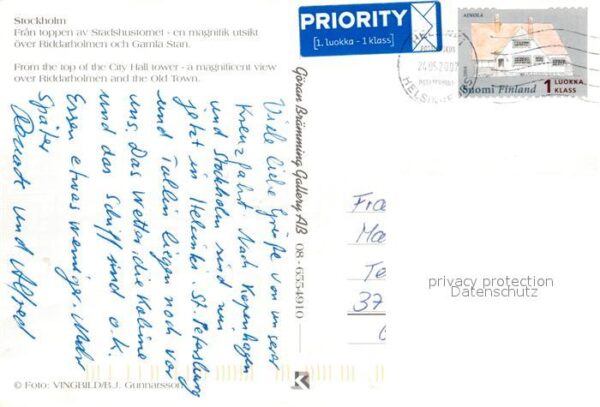 Stockholm
Från toppen av Stadshustornet - en magnifik utsikt
över Riddarholmen och Gamla Stan.
From the top of the City Hall tower - a magnificent view
over Riddarholmen and the Old Town.
Viele liebe Grüße von unserer
Kreuzfahrt. Nach Kopenhagen
und Stockholm sind wir
jetzt in Helsinki. St. Petersburg
und Tallin liegen noch vor
uns. Das Wetter, die Kabine
und das Schiff sind o.k.
Essen etwas weniger. Mehr
später
und Alfred
© Foto: VINGBILD/B.J. Gunnarsson
Göran Brämming Gallery AB 08-6554910
K
PRIORITY
[1. luokka - 1 klass]
AINOLA
Suomi Finland
1 LUOKKA
KLASS
HELSINKI
24.05.2007
HELSINGFORS
Fra
Ma
Te
37
privacy protection
Datenschutz